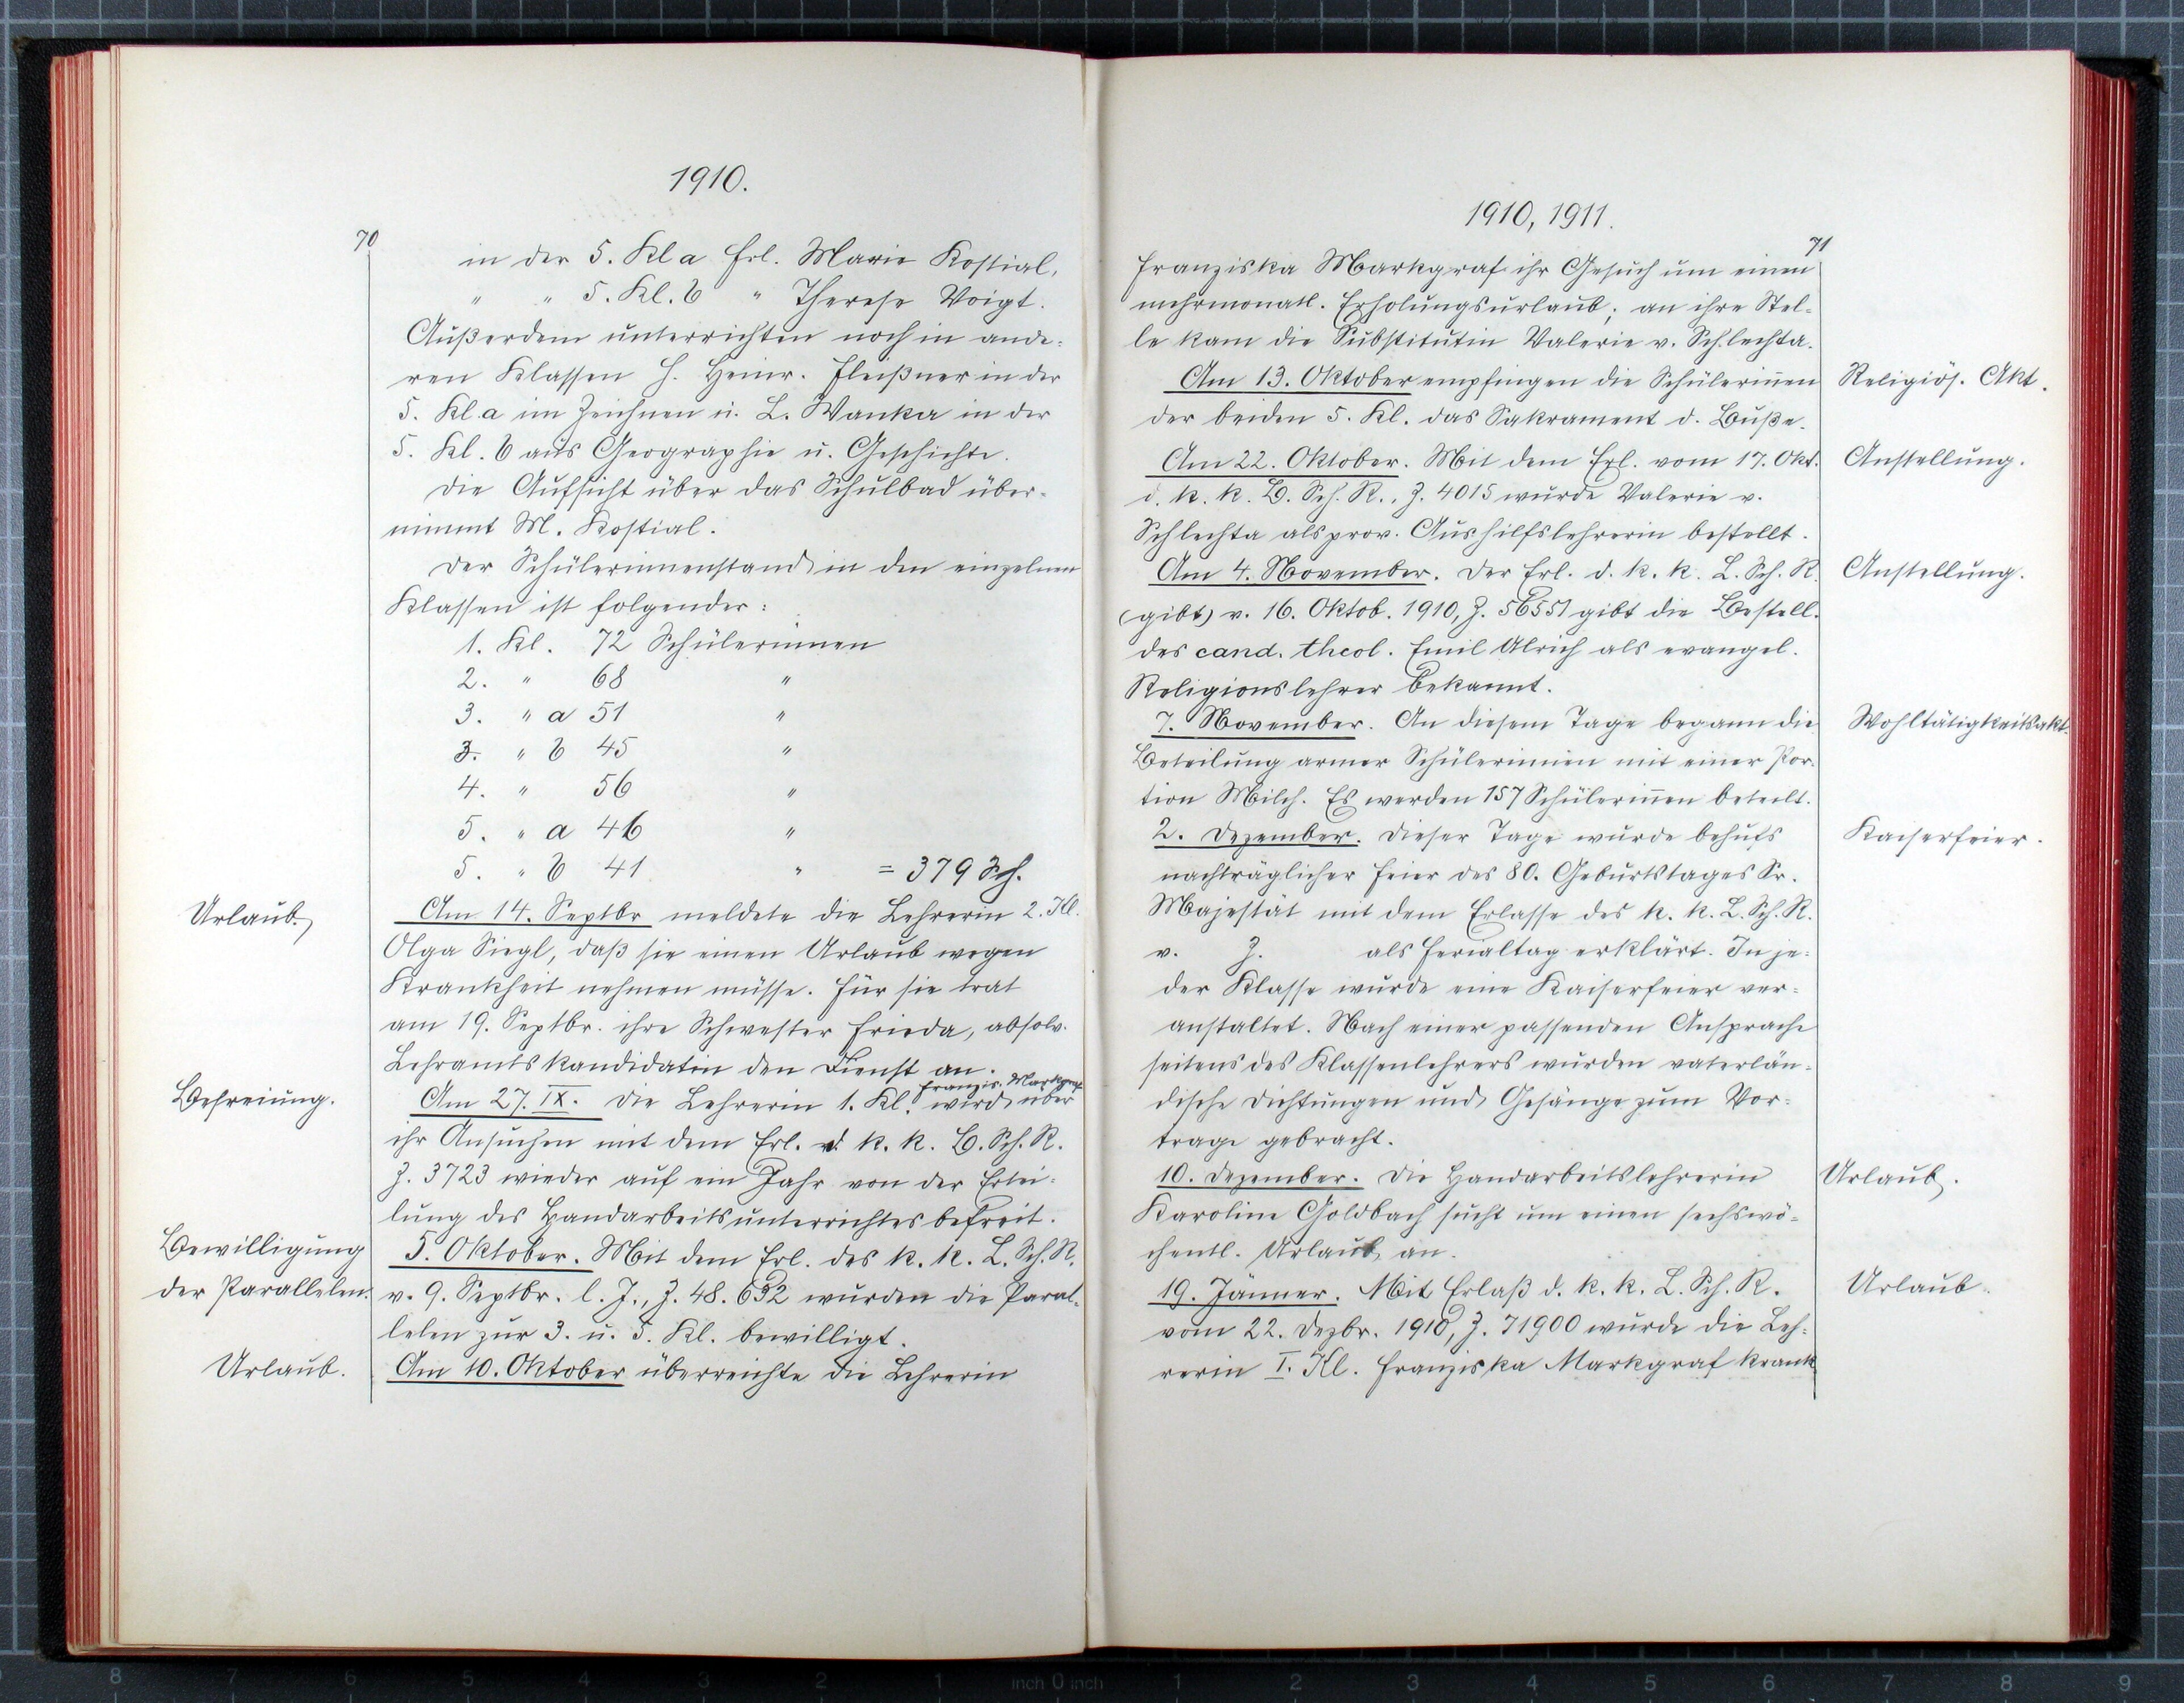 1910.
70
in der 5. Kl. a Frl. Marie Kostial,
" " 5. Kl. b " Therese Voigt.
Außerdem unterrichten noch in ande-
ren Klassen H. Heinr. Fleißner in der
5. Kl. a im Zeichnen u. L. Wanka in der
5. Kl. b aus Geographie u. Geschichte.
Die Aufsicht über das Schulbad über-
nimmt M. Kostial.
Der Schülerinnenstand in den einzelnen
Klassen ist folgender:
1. Kl. 72 Schülerinnen
2. " 68 "
3. " a 51 "
3. " b 45 "
4. " 56 "
5. " a 46 "
5. " b 41 " = 379 Sch.
Urlaub.
Am 14. Septbr meldete die Lehrerin 2. Kl.
Olga Siegl, daß sie einen Urlaub wegen
Krankheit nehmen müsse. Für sie trat
am 19. Septbr. ihre Schwester Frieda, absolv.
Lehramtskandidatin den Dienst an.
Befreiung.
Franzis. Markgraf
Am 27. IX. Die Lehrerin 1. Kl. wird über
ihr Ansuchen mit dem Erl. d. k. k. B. Sch. R.
Z. 3723 wieder auf ein Jahr von der Ertei-
lung des Handarbeitsunterrichtes befreit.
Bewilligung
der Parallelen.
5. Oktober. Mit dem Erl. des k. k. L. Sch. R.
v. 9. Septbr. l. J., Z. 48.632 wurden die Paral-
lelen zur 3. u. 5. Kl. bewilligt.
Urlaub.
Am 10. Oktober überreichte die Lehrerin
1910, 1911.
71
Franziska Markgraf ihr Gesuch um einen
mehrmonatl. Erholungsurlaub; an ihre Stel-
le kam die Substitutin Valerie v. Schlechta.
Am 13. Oktober empfingen die Schülerinen
Religiös. Akt.
der beiden 5. Kl. das Sakrament d. Buße.
Am 22. Oktober. Mit dem Erl. vom 17. Okt.
Anstellung.
d. k. k. B. Sch. R., Z. 4015 wurde Valerie v.
Schlechta als prov. Aushilfslehrerin bestellt.
Am 4. November. Der Erl. d. k. k. L. Sch. R.
Anstellung.
(gibt) v. 16. Oktob. 1910, Z. 56551 gibt die Bestell.
des cand. theol. Emil Ulrich als evangel.
Religionslehrer bekannt.
7. November. An diesem Tage begann die
Wohltätigkeitsakt.
Beteilung armer Schülerinnen mit einer Por-
tion Milch. Es werden 157 Schülerinen beteilt.
2. Dezember. Dieser Tage wurde behufs
Kaiserfeier.
nachträglicher Feier des 80. Geburtstages Sr.
Majestät mit dem Erlasse des k. k. L. Sch. R.
v. Z. als Ferialtag erklärt. In je-
der Klasse wurde eine Kaiserfeier ver-
anstaltet. Nach einer passenden Ansprache
seitens des Klassenlehrers wurden vaterlän-
dische Dichtungen und Gesänge zum Vor-
trage gebracht.
10. Dezember. Die Handarbeitslehrerin
Urlaub.
Karoline Goldbach sucht um einen sechswö-
chentl. Urlaub an.
19. Jänner. Mit Erlaß d. k. k. L. Sch. R.
Urlaub.
vom 22. Dezbr. 1910, Z. 71900 wurde die Leh-
rerin I. Kl. Franziska Markgraf krank-
8 7 6 5 4 3 2 1 inch 0 inch 1 2 3 4 5 6 7 8 9